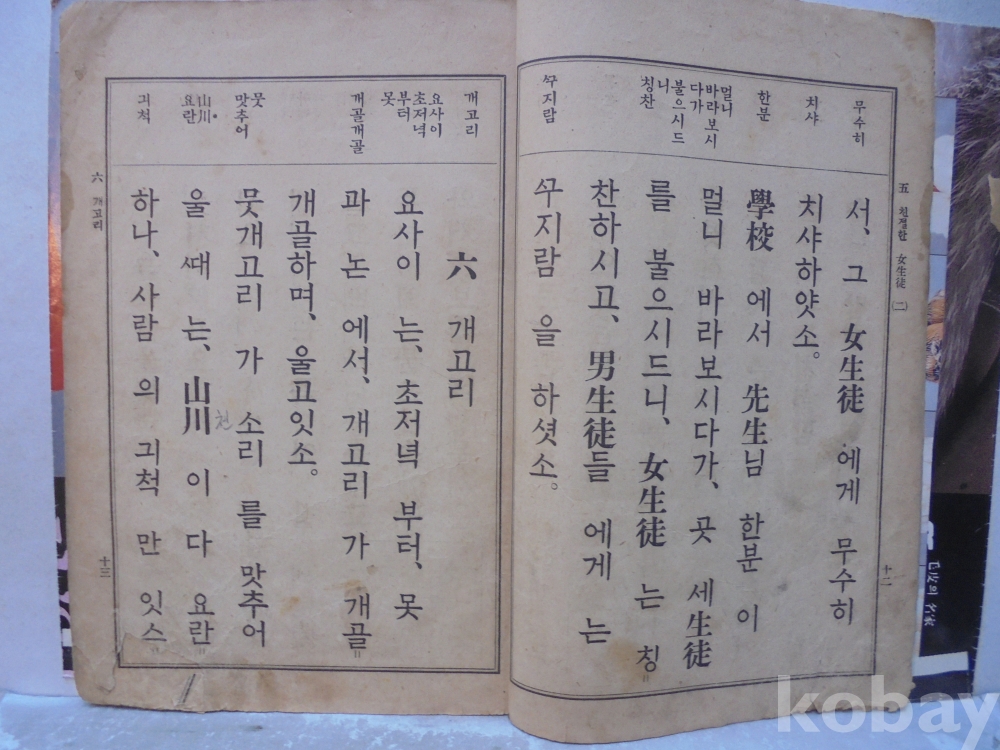 五 친졀한 女生徒 (二)
十二
무수히
치샤
한분
멀니
바라보시
다가
불으시드
니
칭찬
ᄭᅮ지람
서、그 女生徒 에게 무수히
치샤하얏소。
學校 에서 先生님 한분 이
멀니 바라보시다가、곳 세生徒
를 불으시드니、女生徒 는 칭〃
찬하시고、男生徒들 에게 는
ᄭᅮ지람 을 하셧소。
개고리
요사이
초저녁
부터
못
개골개골
뭇
맛추어
山川
요란
긔척
六 개고리
요사이 는、초저녁 부터、못
과 논 에서、개고리 가 개골〃
개골하며、울고잇소。
뭇개고리 가 소리 를 맛추어
울 ᄯᅢ 는、山川 이 다 요란〃
하나、사람 의 긔척 만 잇스〃
六 개고리
十三
kobay